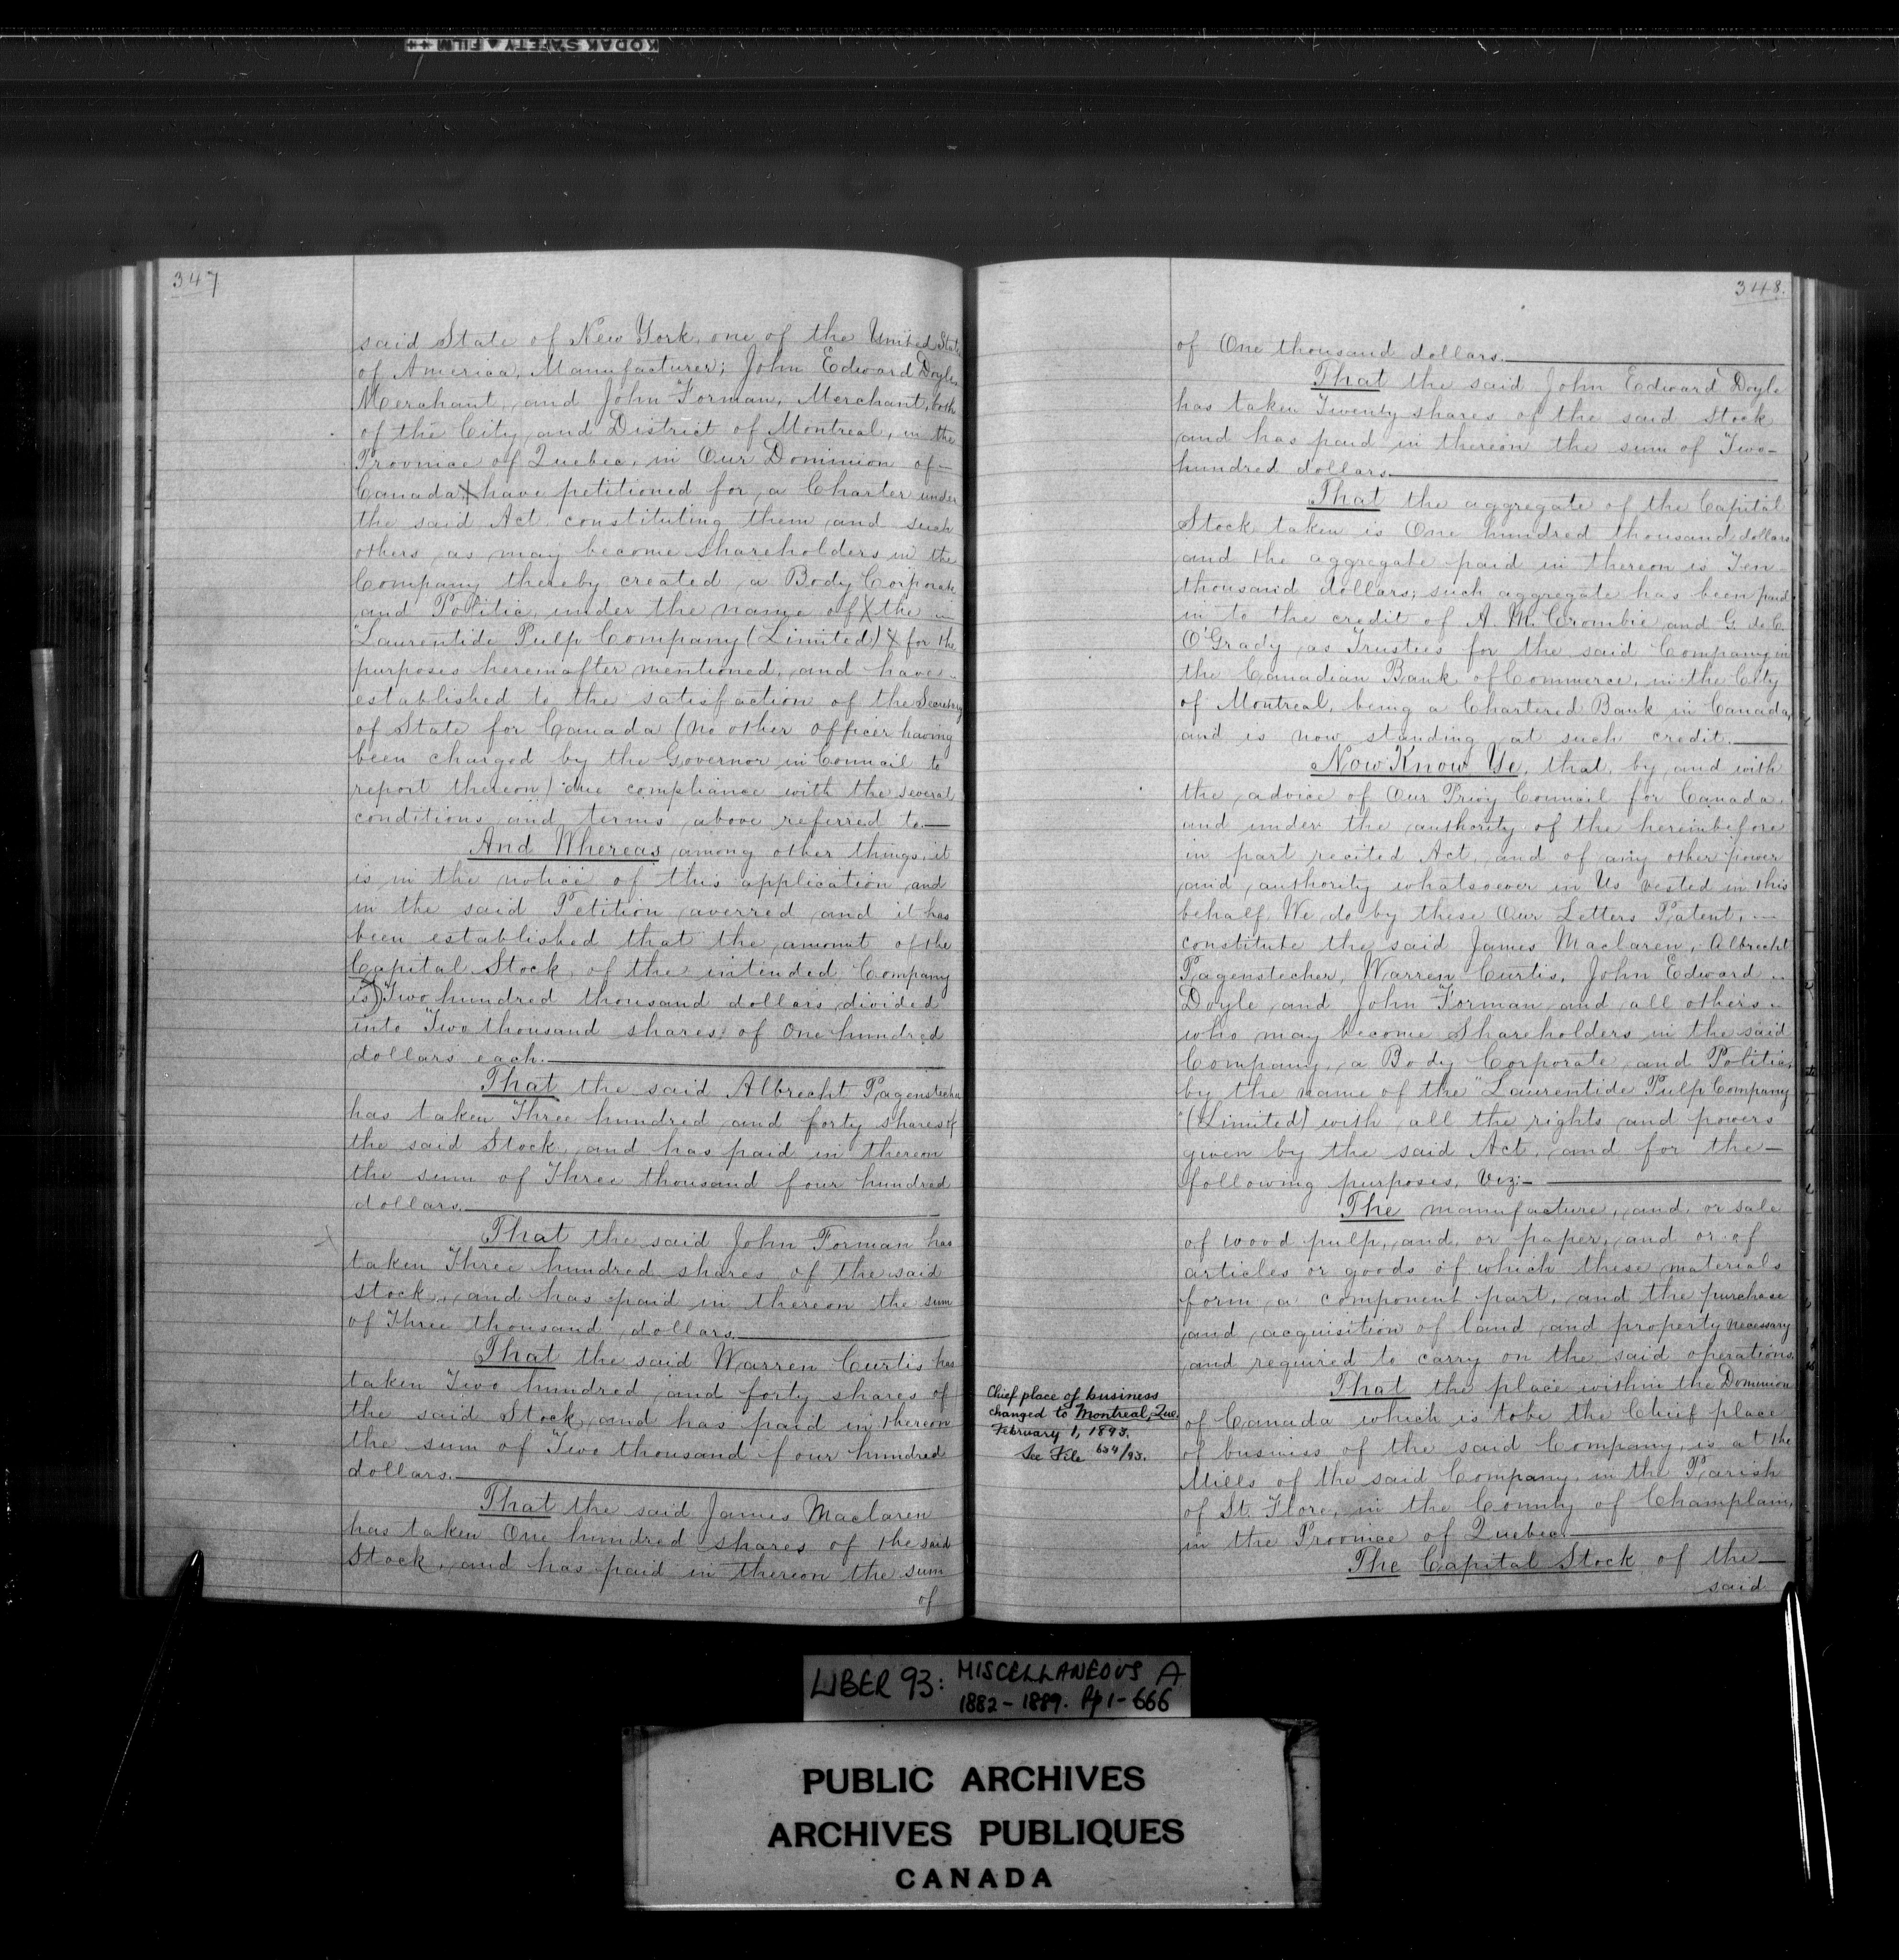 KODAK SAFETY FILM
347
said State of New York, one of the United States
of America, Manufacturer; John Edward Doyle
Merchant, and John Forman, Merchant, both
of the City and District of Montreal, in the
Province of Quebec, in Our Dominion of
Canada, have petitioned for a Charter under
the said Act constituting them and such
others as may become Shareholders in the
Company thereby created a Body Corporate
and Politic under the name of the
"Laurentide Pulp Company (Limited)" for the
purposes hereinafter mentioned, and have
established to the satisfaction of the Secretary
of State for Canada (no other Officer having
been charged by the Governor in Council to
report thereon) due compliance with the several
conditions and terms above referred to.
And Whereas among other things, it
is in the notice of this application and
in the said Petition averred and it has
been established that the amount of the
Capital Stock of the intended Company
is Two hundred thousand dollars divided
into Two thousand shares of One hundred
dollars each.
That the said Albrecht Pagenstecher
has taken Three hundred and forty shares of
the said Stock, and has paid in thereon
the sum of Three thousand four hundred
dollars.
That the said John Forman has
taken Three hundred shares of the said
stock, and has paid in thereon the sum
of Three thousand dollars.
That the said Warren Curtis has
taken Two hundred and forty shares of
the said Stock, and has paid in thereon
the sum of Two thousand four hundred
dollars.
That the said James Maclaren
has taken One hundred shares of the said
Stock, and has paid in thereon the sum
of
348.
of One thousand dollars.
That the said John Edward Doyle
has taken Twenty shares of the said Stock
and has paid in thereon the sum of Two-
hundred dollars.
That the aggregate of the Capital
Stock taken is One hundred thousand dollars
and the aggregate paid in thereon is Ten
thousand dollars; such aggregate has been paid
in to the credit of A. M. Crombie and G. de C.
O'Grady as Trustees for the said Company in
the Canadian Bank of Commerce, in the City
of Montreal, being a Chartered Bank in Canada,
and is now standing at such credit.
Now Know Ye, that, by and with
the advice of Our Privy Council for Canada
and under the authority of the hereinbefore
in part recited Act, and of any other power
and authority whatsoever in Us vested in this
behalf We do by these Our Letters Patent,
constitute the said James Maclaren, Albrecht
Pagenstecher, Warren Curtis, John Edward
Doyle and John Forman and all others
who may become Shareholders in the said
Company, a Body Corporate and Politic,
by the name of the "Laurentide Pulp Company
"(Limited)" with all the rights and powers
given by the said Act, and for the
following purposes, Viz:-
The manufacture, and, or sale
of wood pulp, and, or paper, and or of
articles or goods of which these materials
form a component part, and the purchase
and acquisition of land and property necessary
and required to carry on the said operations.
Chief place of business
changed to Montreal, Que.
February 1, 1893.
See File 634/93.
That the place within the Dominion
of Canada which is to be the Chief place
of business of the said Company, is at the
Mills of the said Company, in the Parish
of St. Flore, in the County of Champlain,
in the Province of Quebec.
The Capital Stock of the
said
LIBER 93: MISCELLANEOUS A
1882-1889. Pp 1-666
PUBLIC ARCHIVES
ARCHIVES PUBLIQUES
CANADA